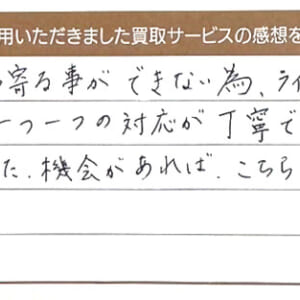 用いただきました買取サービスの感想を
寄る事ができない為、ライ
一つ一つの対応が丁寧で
た.機会があれば.こちら